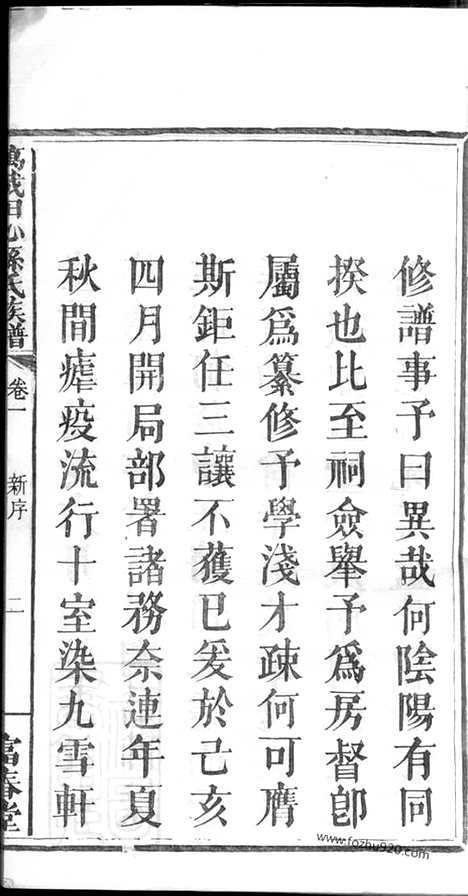 修譜事予曰異哉何陰陽有同
揆也比至祠僉舉予為房督卽
屬為纂修予學淺才疎何可膺
斯鉅任三讓不獲已爰於己亥
四月開局部署諸務奈連年夏
秋間瘧疫流行十室染九雪軒
萬載田心孫氏族譜 卷一 新序 二 富春堂
www.fozhu920.com